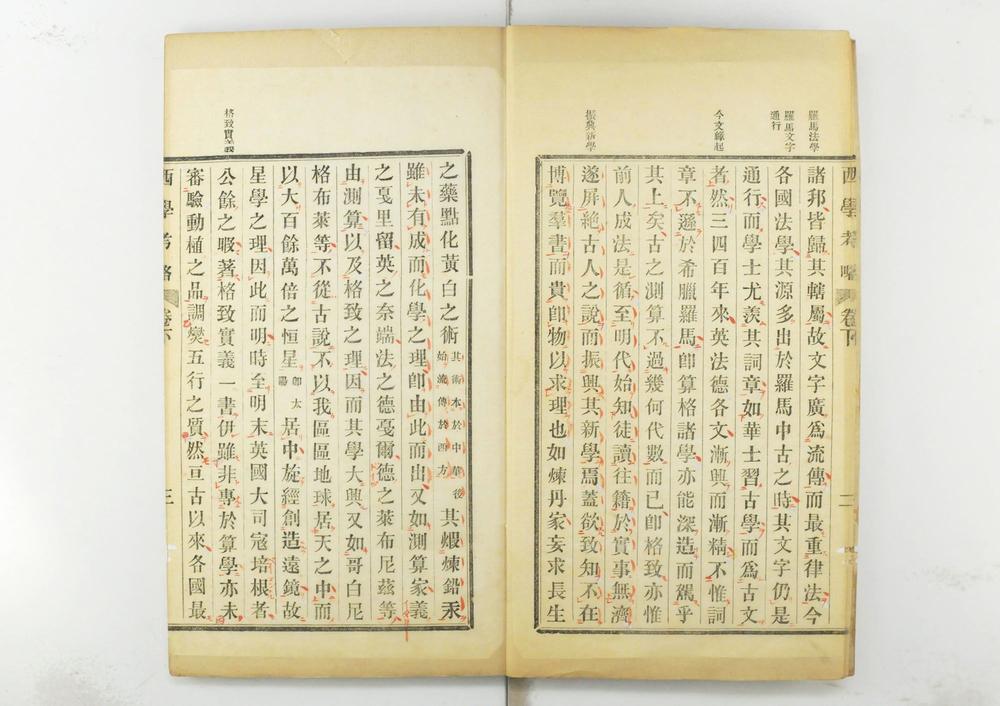 羅馬法學
羅馬文字
通行
今文緣起
振興新學
西學考略 卷下 二
諸邦皆歸其轄屬故文字廣爲流傳而最重律法今
各國法學其源多出於羅馬中古之時其文字仍是
通行而學士尤羨其詞章如華士習古學而爲古文
者然三四百年來英法德各文漸興而漸精不惟詞
章不遜於希臘羅馬卽算格諸學亦能深造而駕乎
其上矣古之測算不過幾何代數而已卽格致亦惟
前人成法是循至明代始知徒讀往籍於實事無濟
遂屏絕古人之說而振興其新學焉蓋欲致知不在
博覽羣書而貴卽物以求理也如煉丹家妄求長生
格致實義
之藥點化黃白之術其術本於中華後始流傳於西方其煆煉鉛汞
雖未有成而化學之理卽由此而出又如測算家義
之戛里留英之奈端法之德戛爾德之萊布尼茲等
由測算以及格致之理因而其學大興又如哥白尼
格布萊等不從古說不以我區區地球居天之中而
以大百餘萬倍之恒星卽太陽居中旋經創造遠鏡故
星學之理因此而明時至明末英國大司寇培根者
公餘之暇著格致實義一書伊雖非專於算學亦未
審驗動植之品調燮五行之質然亘古以來各國最
西學考略 卷下 三